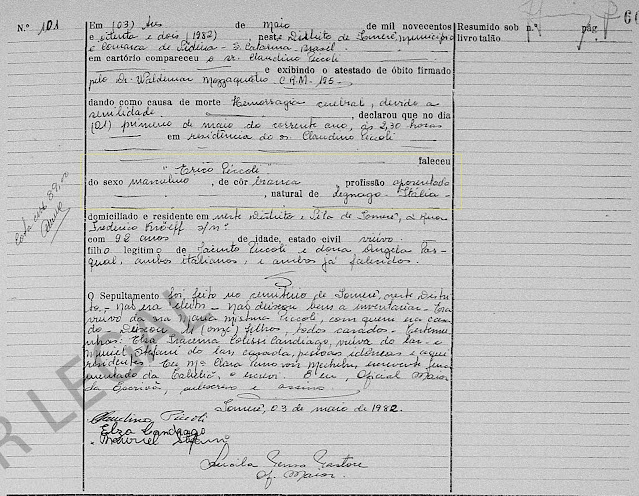 N.º 101
Em (03) três de maio de mil novecentos
e oitenta e dois (1982), neste Distrito de Lomerê, município
e comarca de Videira - S. Catarina - Brasil
em cartório compareceu o sr. Claudino Piccoli
e exibindo o atestado de óbito firmado
pelo Dr. Waldemar Mozzaquatro C.R.M. 185.
dando como causa de morte Hemorragia cerebral, devido a
senilidade , declarou que no dia
(01) primeiro de maio do corrente ano, ás 2,30 horas
em residência do sr. Claudino Piccoli
faleceu
"Erico Piccoli"
do sexo masculino , de côr branca , profissão aposentado
, natural de Legnago - Itália -
domiciliado e residente em neste Distrito e Vila de Lomerê, à Rua
Frederico s/nº
com 92 anos de idade, estado civil viúvo.
filho legitimo de Jacinto Piccoli e dona Angela Pas-
qual, ambos italianos, e ambos já falecidos.
O Sepultamento foi feito no cemitério de Lomerê, neste Distri-
to. - Não era eleitor - Não deixou bens a inventariar. - Era
viuvo da sra Maria Piccoli, com quem era casa-
do - Deixou 11 (onze) filhos, todos casados. - Testemu-
nhas: Elza Iracema Candiago, viúva do lar - e
Muriel Stefani do lar, casada, pessoas idôneas e aqui
residentes. Eu Mª Clara von escrevente jura-
mentada da , o escrevi. E eu, Oficial Maior
da Escrivã, subscrevo e assino.
Lomerê, 03 de maio de 1982.
Claudino Piccoli
Elza Candiago
Muriel Stefani
Of. Maior.
Resumido sob n.º pág.
livro talão.
R LEGAL